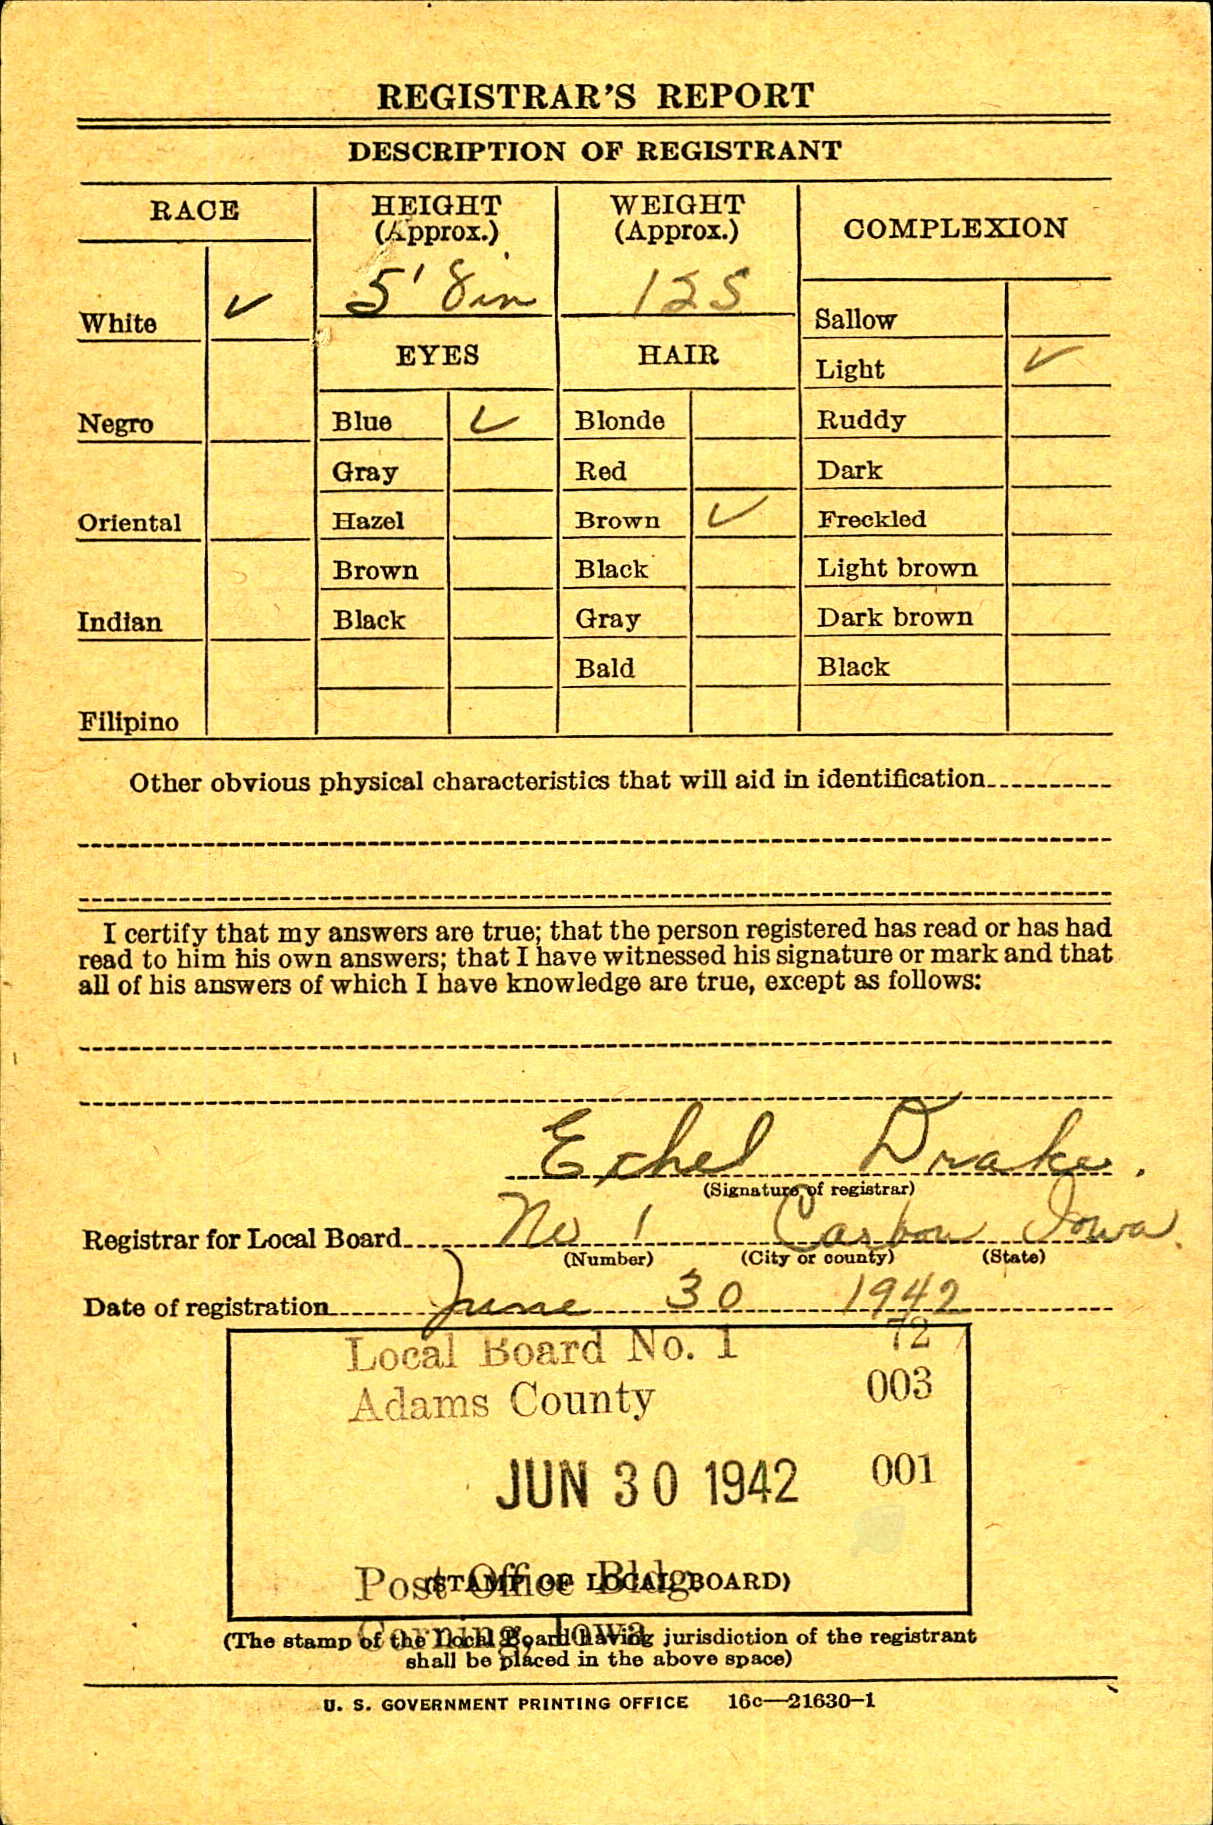 REGISTRAR'S REPORT
DESCRIPTION OF REGISTRANT
RACE
HEIGHT
(Approx.)
WEIGHT
(Approx.)
COMPLEXION
5' 8in
125
White ✓
Sallow
EYES
HAIR
Light ✓
Negro
Blue ✓
Blonde
Ruddy
Gray
Red
Dark
Oriental
Hazel
Brown ✓
Freckled
Brown
Black
Light brown
Indian
Black
Gray
Dark brown
Bald
Black
Filipino
Other obvious physical characteristics that will aid in identification
I certify that my answers are true; that the person registered has read or has had
read to him his own answers; that I have witnessed his signature or mark and that
all of his answers of which I have knowledge are true, except as follows:
Ethel Drake.
(Signature of registrar)
Registrar for Local Board No 1 Carbon Iowa.
(Number) (City or county) (State)
Date of registration June 30 1942
Local Board No. 1 72
Adams County 003
JUN 30 1942 001
Post Office Bldg.
(STAMP OF LOCAL BOARD)
Corning, Iowa
(The stamp of the Local Board having jurisdiction of the registrant
shall be placed in the above space)
U. S. GOVERNMENT PRINTING OFFICE 16c—21630-1